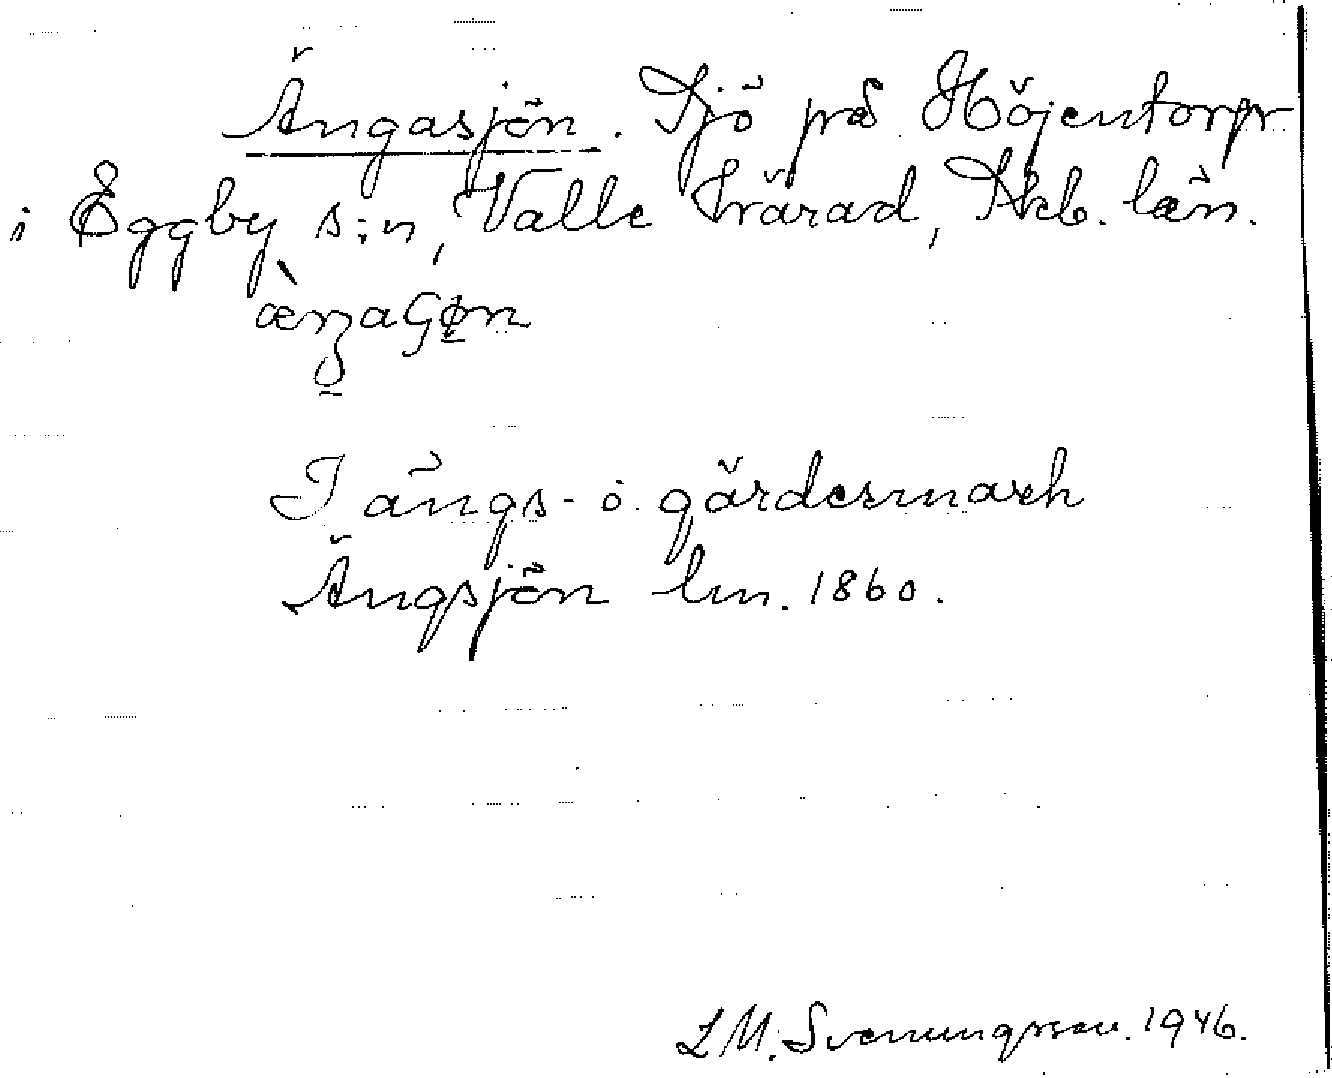 Ängasjön. Sjö på Höjentorp
i Eggby s:n, Valle härad, Skb. län.
I ängs- o. gärdesmark
Ängsjön lm. 1860.
L M. Svenungsson. 1946.